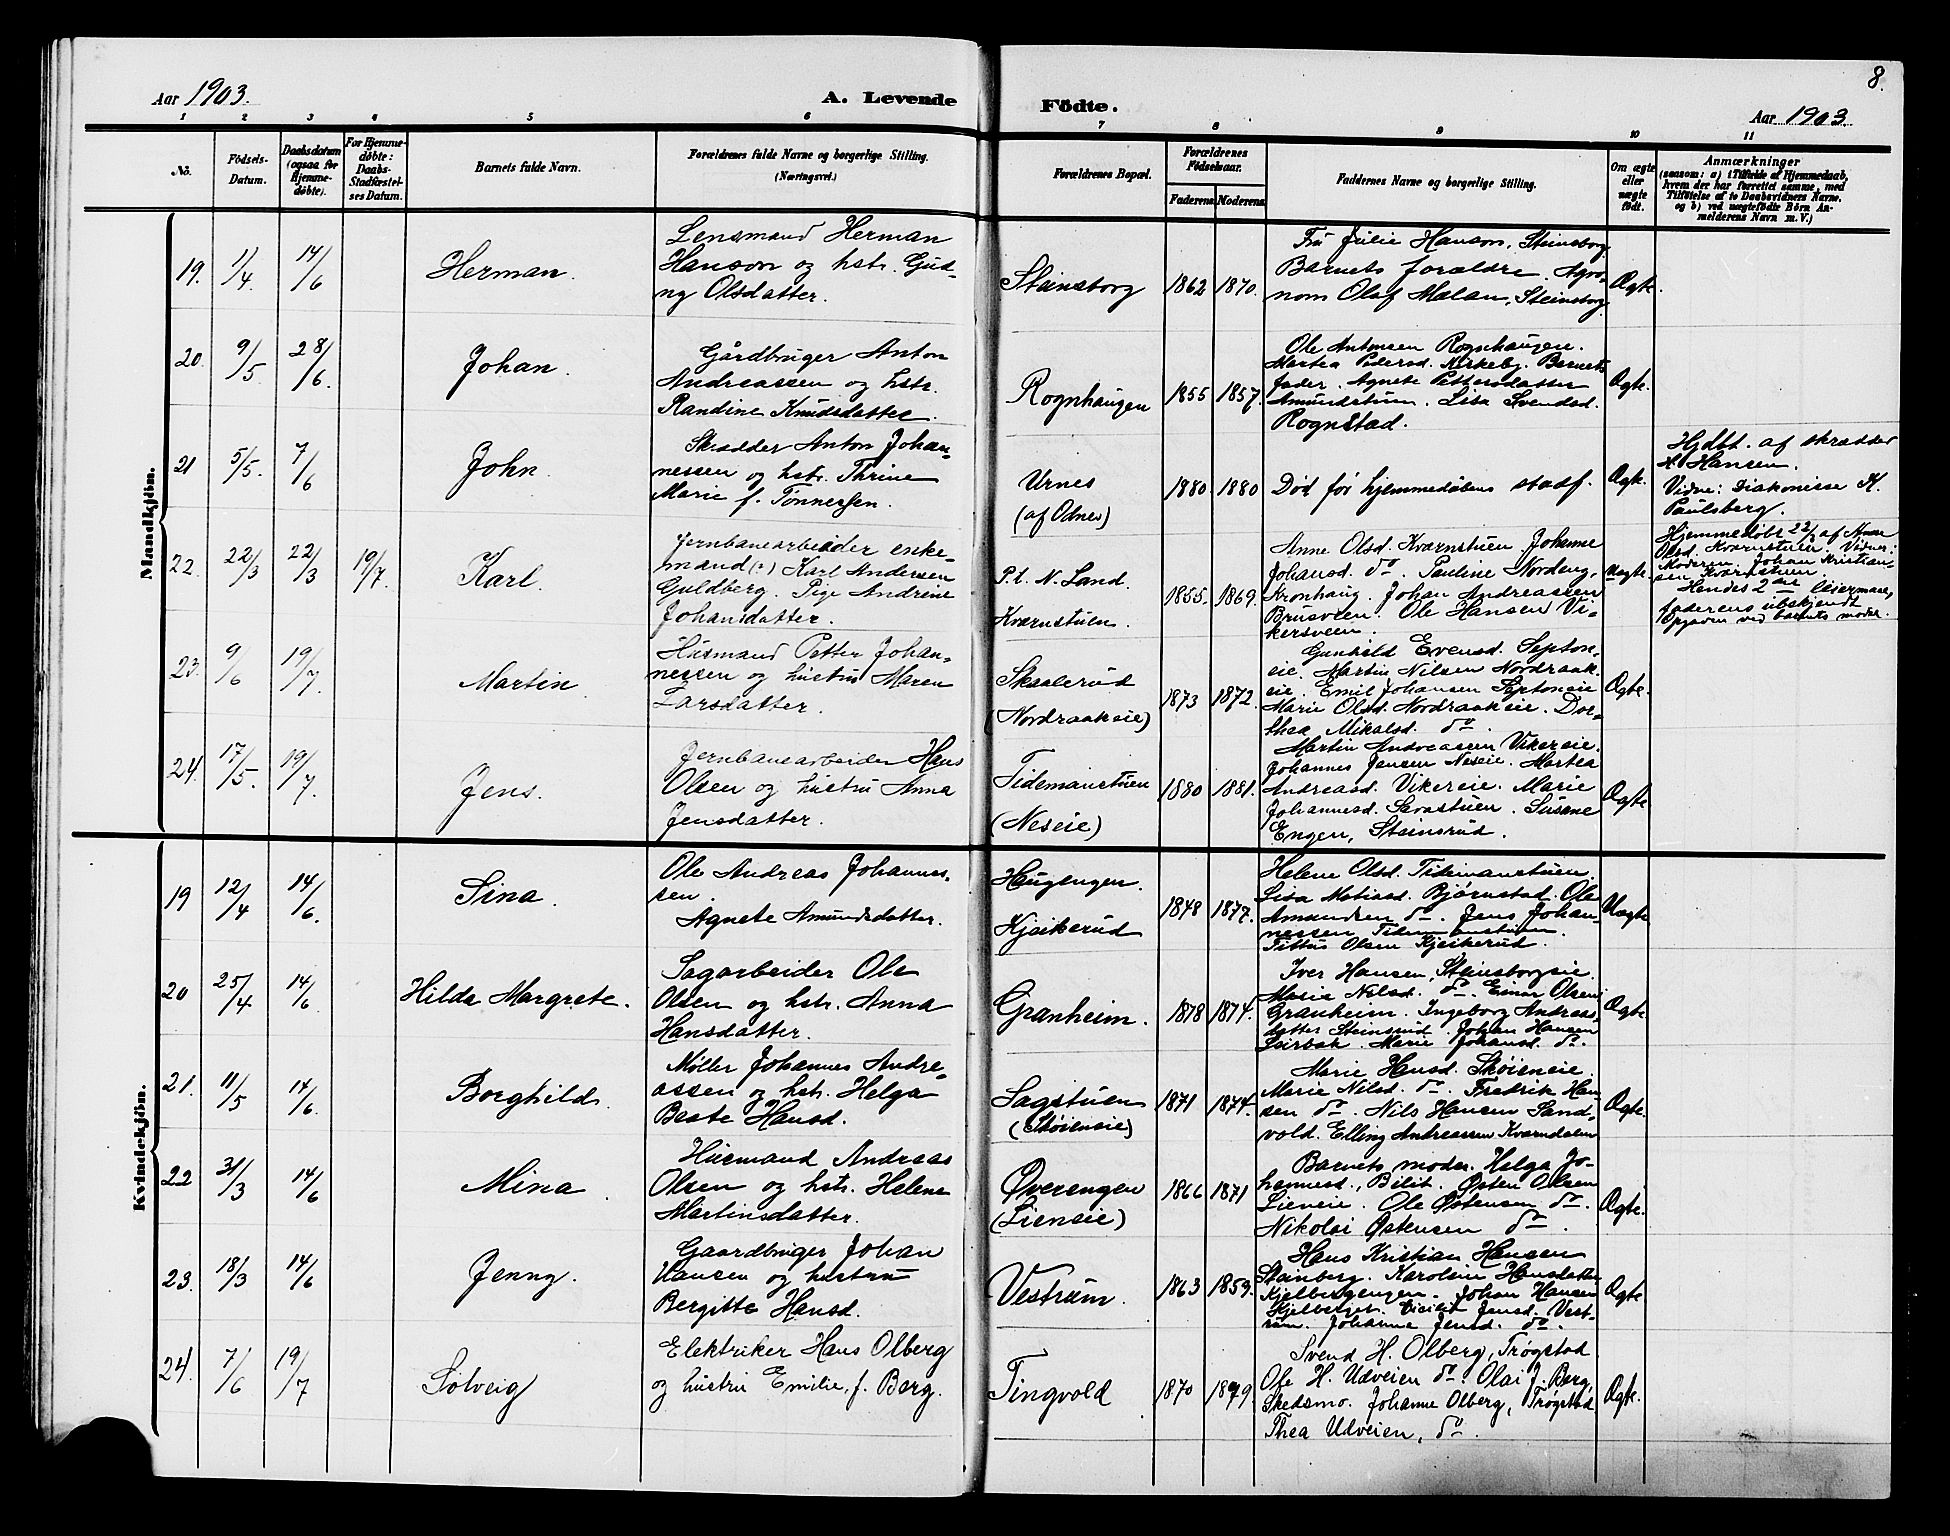 8.
Aar 1903.
A. Levende
Födte.
Aar 1903.
1 2 3 4 5 6 7 8 9 10 11
No.
Födsels-
Datum.
Daabsdatum
(ogsaa for
Hjemme-
døbte).
For Hjemme-
døbte:
Daabs-
Stadfæstel-
ses Datum.
Barnets fulde Navn.
Forældrenes fulde Navne og borgerlige Stilling.
(Næringsvei.)
Forældrenes Bopæl.
Forældrenes
Fødselsaar.
Faderens Moderens
Faddernes Navne og borgerlige Stilling.
Om ægte
eller
uægte
født.
Anmærkninger
(saasom: a) i Tilfælde af Hjemmedaab,
hvem der har forrettet samme, med
Tilføielse af to Daabsvidners Navne.
og b) ved uægtefødte Børn An-
melderens Navn m. V.)
Mandkjön.
19. 1/4 14/6
Herman.
Lensmand Herman
Hanson og hstr. Gud-
ny Olsdatter.
Steinsborg 1862 1870.
Fru Julie Hanson, Steinsborg.
Barnets forældre. Agro-
nom Olaf Mælan, Steinsborg.
Ægte.
20. 9/5. 28/6.
Johan.
Gårdbruger Anton
Andreassen og hstr.
Randine Knudsdatter.
Rognhaugen 1855 1857.
Ole Antonsen Rognhaugen.
Martea Pedersd. Kirkeby. Barnets
fader. Agnete Pettersdatter
Amundstuen. Lisa Svendsd.
Rognstad.
Ægte.
21 5/5. 7/6
John
Skrædder Anton Johan-
nessen og hstr. Thrine
Marie f. Tønnersen.
Urnes
(af Odnes)
1880. 1880
Død før hjemmedåbens stadf.
Ægte.
Hjdbt. af skrædder
H. Hansen.
Vidne: Diakonisse K.
Paulsberg.
22. 22/3 22/3 19/7.
Karl.
Jernbanearbeider enke-
mand (?) Karl Andersen
Guldberg. Pige Andrine
Johansdatter.
P.t. N. Land.
Kværnstuen.
1855. 1869.
Anne Olsd. Kværnstuen. Johanne
Johansd. do. Pauline Nordeng,
Kronhaug. Johan Andreassen
Brusveen. Ole Hansen Vi-
kersveen.
Uægte.
Hjemmedøbt 22/3 af Anne
Olsd. Kværnstuen. Vidner:
Moderen, Johan Kristian-
sen Kværnstuen.
Hendes 2den leiermaal,
faderens ubekjendt
Opgaven ved barnets moder.
23. 9/6 19/7.
Martin.
Husmand Petter Johan-
nessen og hustru Maren
Larsdatter.
Skaalerud
(Nordraakeie)
1873 1872.
Gunhild Evensd. Septon-
eie. Martin Nilsen Nordraak-
eie. Emil Johansen Septoneie
Marie Olsd. Nordraakeie. Dor-
thea Mikalsd. do.
Ægte.
24. 17/5. 19/7.
Jens.
Jernbanearbeider Hans
Olsen og hustru Anna
Jensdatter.
Tidemanstuen
(Neseie)
1880 1881.
Martin Andreassen Vikereie.
Johannes Jensen Neseie. Martea
Andreasd. Vikereie. Marie
Johannesd. Sarastuen. Susane
Engen, Steinsrud.
Ægte
Kvindekjön.
19 12/4 14/6.
Sina.
Ole Andreas Johannes-
sen.
Agnete Amundsdatter.
Haugengen.
Kjeikerud
1848 1877.
Helene Olsd. Tidemanstuen.
Lisa Matiasd. Bjørnstad. Ole
Amundsen do. Jens Johan-
nessen Tidemanstuen.
Tittus Olsen Kjeikerud.
Uægte
20 25/4 14/6
Hilda Margrete.
Sagarbeider Ole
Olsen og hstr. Anna
Hansdatter.
Granheim. 1878 1874.
Iver Hansen, Steinsborgeie.
Marie Nilsd. do. Einar Olsen
Granheim. Ingeborg Andreas-
datter Steinsrud. Johan Hansen
Leirbak. Marie Johansd. do.
Ægte.
21. 11/5 14/6.
Borghild.
Møller Johannes Andre-
assen og hstr. Helga
Beate Hansd.
Sagstuen
(Skøieneie)
1871 1874.
Marie Hansd. Skøieneie.
Marie Nilsd. do. Fredrik Han-
sen do. Nils Hansen Sand-
vold. Elling Andreassen Kværndalen
Ægte.
22 31/3 14/6
Mina.
Husmand Andreas
Olsen og hstr. Helene
Martinsdatter.
Øverengen
(Lieneie)
1866 1871
Barnets moder. Helga Jo-
hannesd., Bilit. Østen Olsen
Lieneie. Ole Østensen do.
Nikolai Østensen do.
Ægte.
23. 18/3 14/6
Jenny.
Gaardbruger Johan
Hansen og hustru
Bergitte Hansd.
Vestrum. 1863 1859.
Hans Kristian Hansen
Steinberg. Karoline Hansdatter
Kjelbergengen. Johan Hansen
Kjelberget. Cicilie Jensd. Vest-
rum. Johanna Jensd. do.
Ægte
24. 7/6 19/7
Solveig
Elektriker Hans Olberg
og hustru Emilie, f. Berg.
Tingvold 1870 1879.
Svend H. Olberg, Trøgstad
Ole H. Udveien do. Olai J. Berg,
Skedsmo. Johanne Olberg, Trøgstad
Thea Udveien, do.
Ægte.